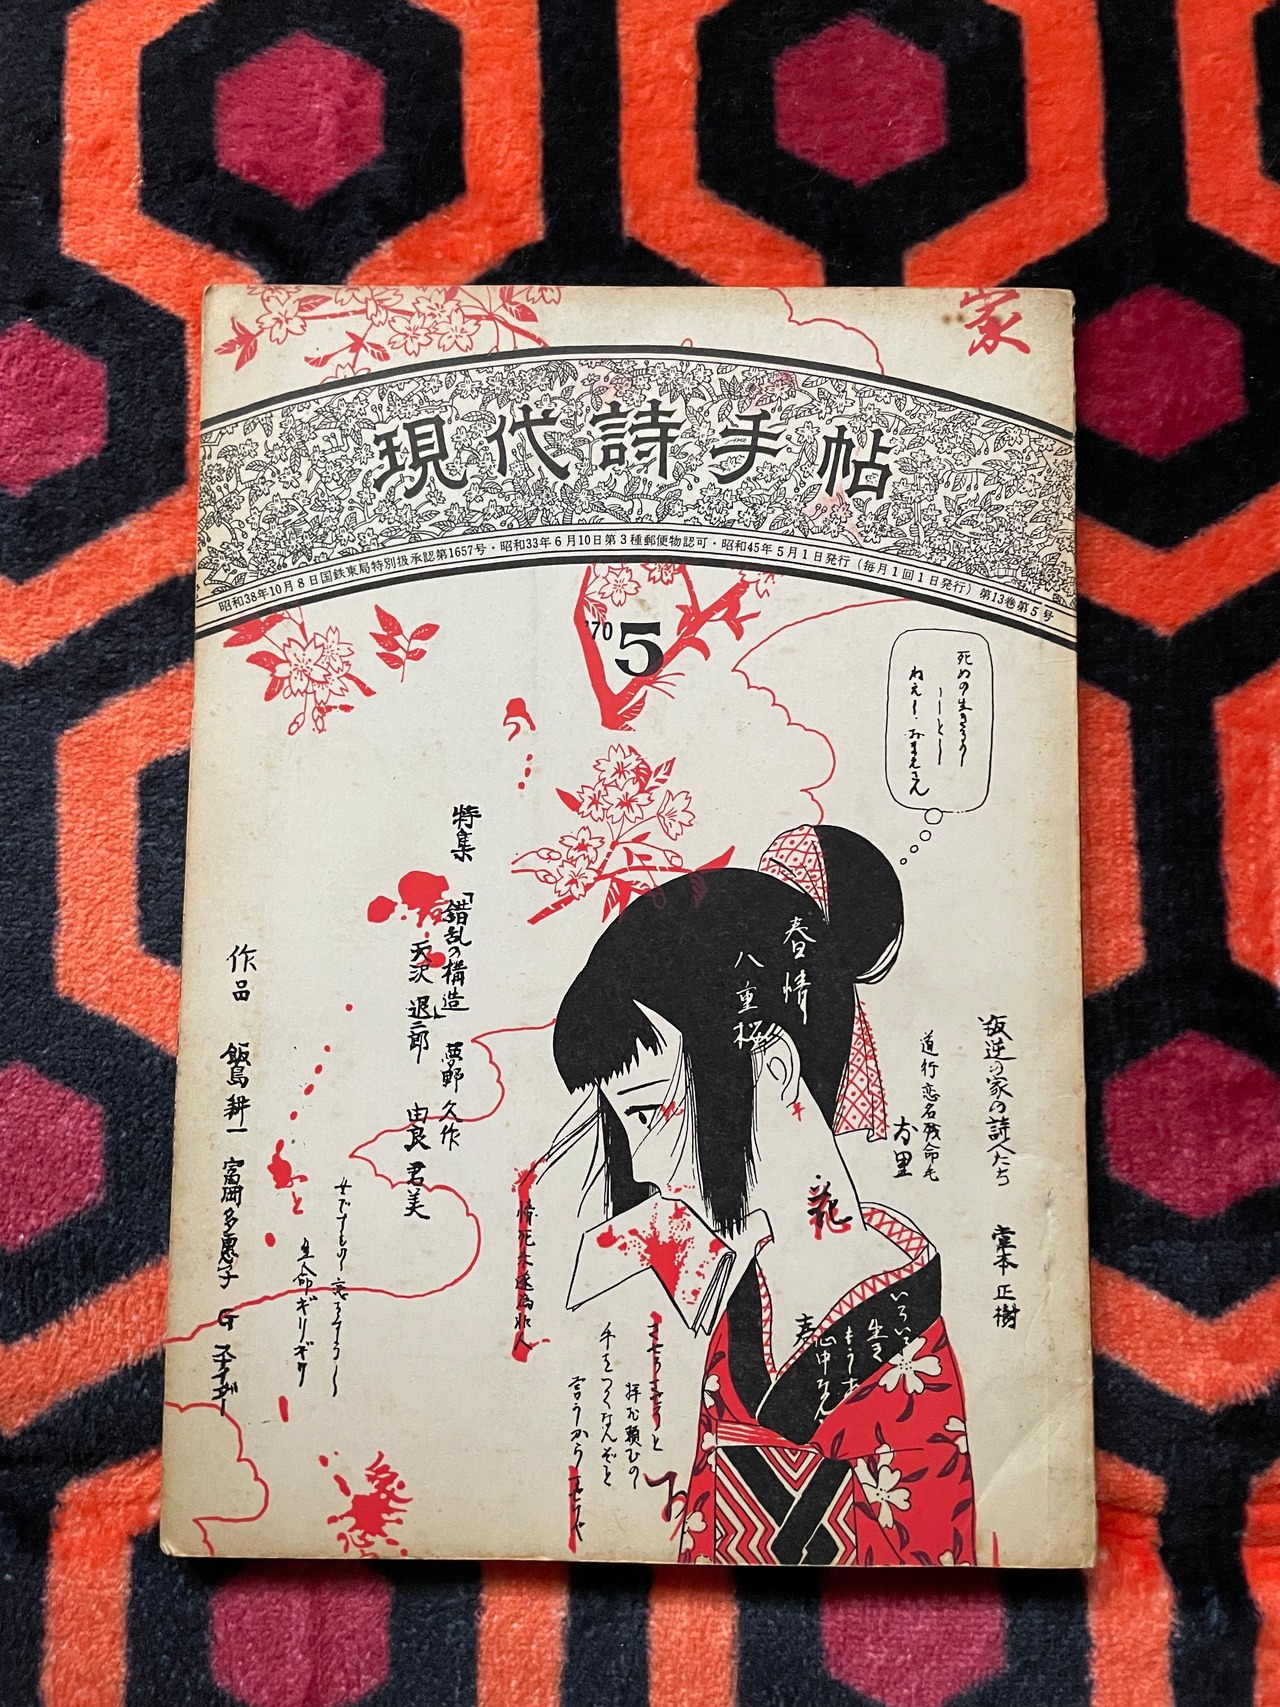 家
現代詩手帖
昭和38年10月8日国鉄東局特別扱承認第1657号・昭和33年6月10日第3種郵便物認可・昭和45年5月1日発行(毎月1回1日発行)第13巻第5号
'70 5
死ぬの生きるの
ねえ おまえさん
叛逆の家の詩人たち 堂本正樹
道行恋名残命毛
お里
春情
八重桜
特集 「錯乱の構造」 夢野久作
天沢退二郎 由良君美
作品 飯島耕一 富岡多恵子 G スナイダー
生命ギリギリ
手をつくなんぞと
言うから
いろいろ
生き
心中なんて